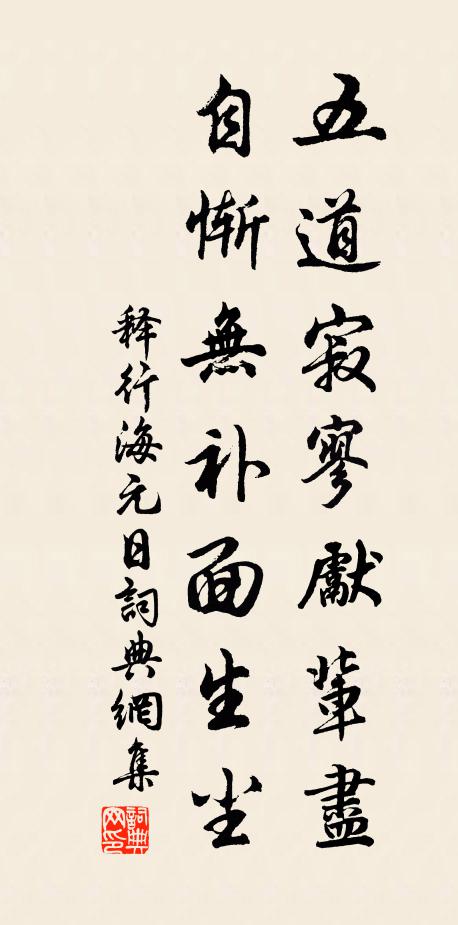 五道寂寥獻輩盡
自慚無补面生尘
释行海元日詞典網集
詞典網印